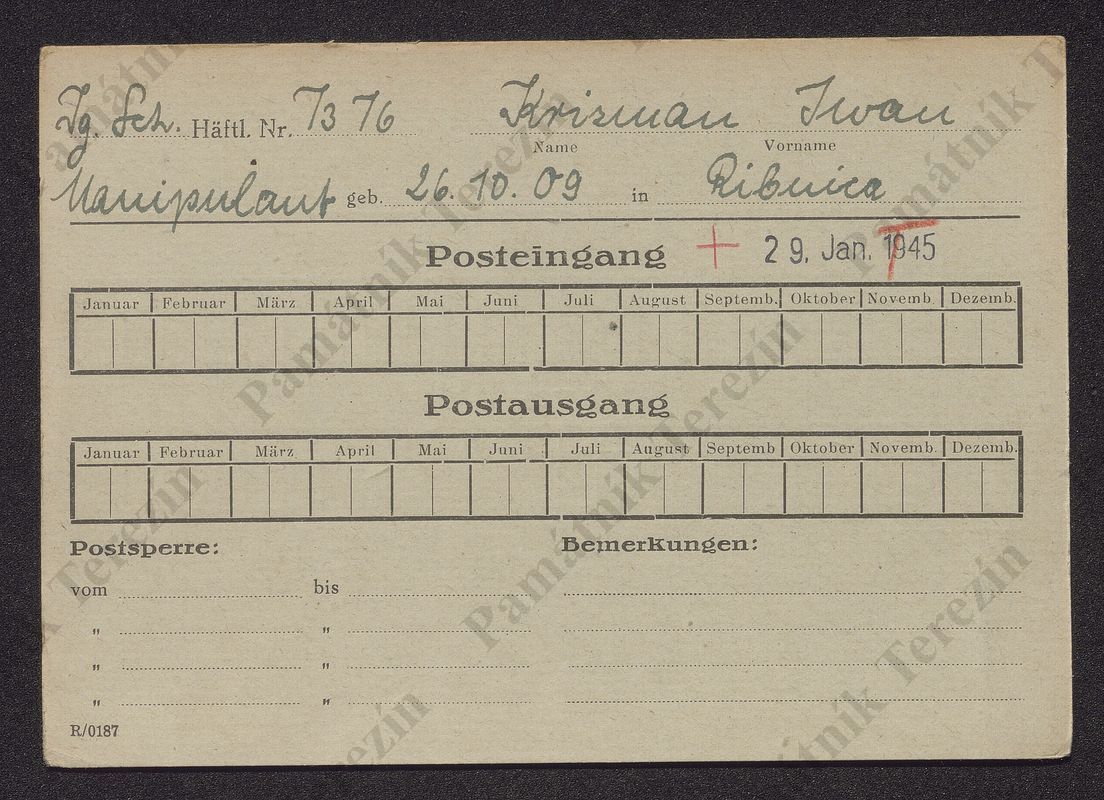 Jg. Sch. Häftl. Nr. 7376 Krizman Iwan
Name Vorname
Manipulant geb. 26. 10. 09 in Ribnica
Posteingang + 29. Jan. 1945 T
Januar Februar März April Mai Juni Juli August Septemb. Oktober Novemb. Dezemb.
Postausgang
Januar Februar März April Mai Juni Juli August Septemb Oktober Novemb. Dezemb.
Postsperre: Bemerkungen:
vom bis
" "
" "
" "
R/0187
Památník Terezín